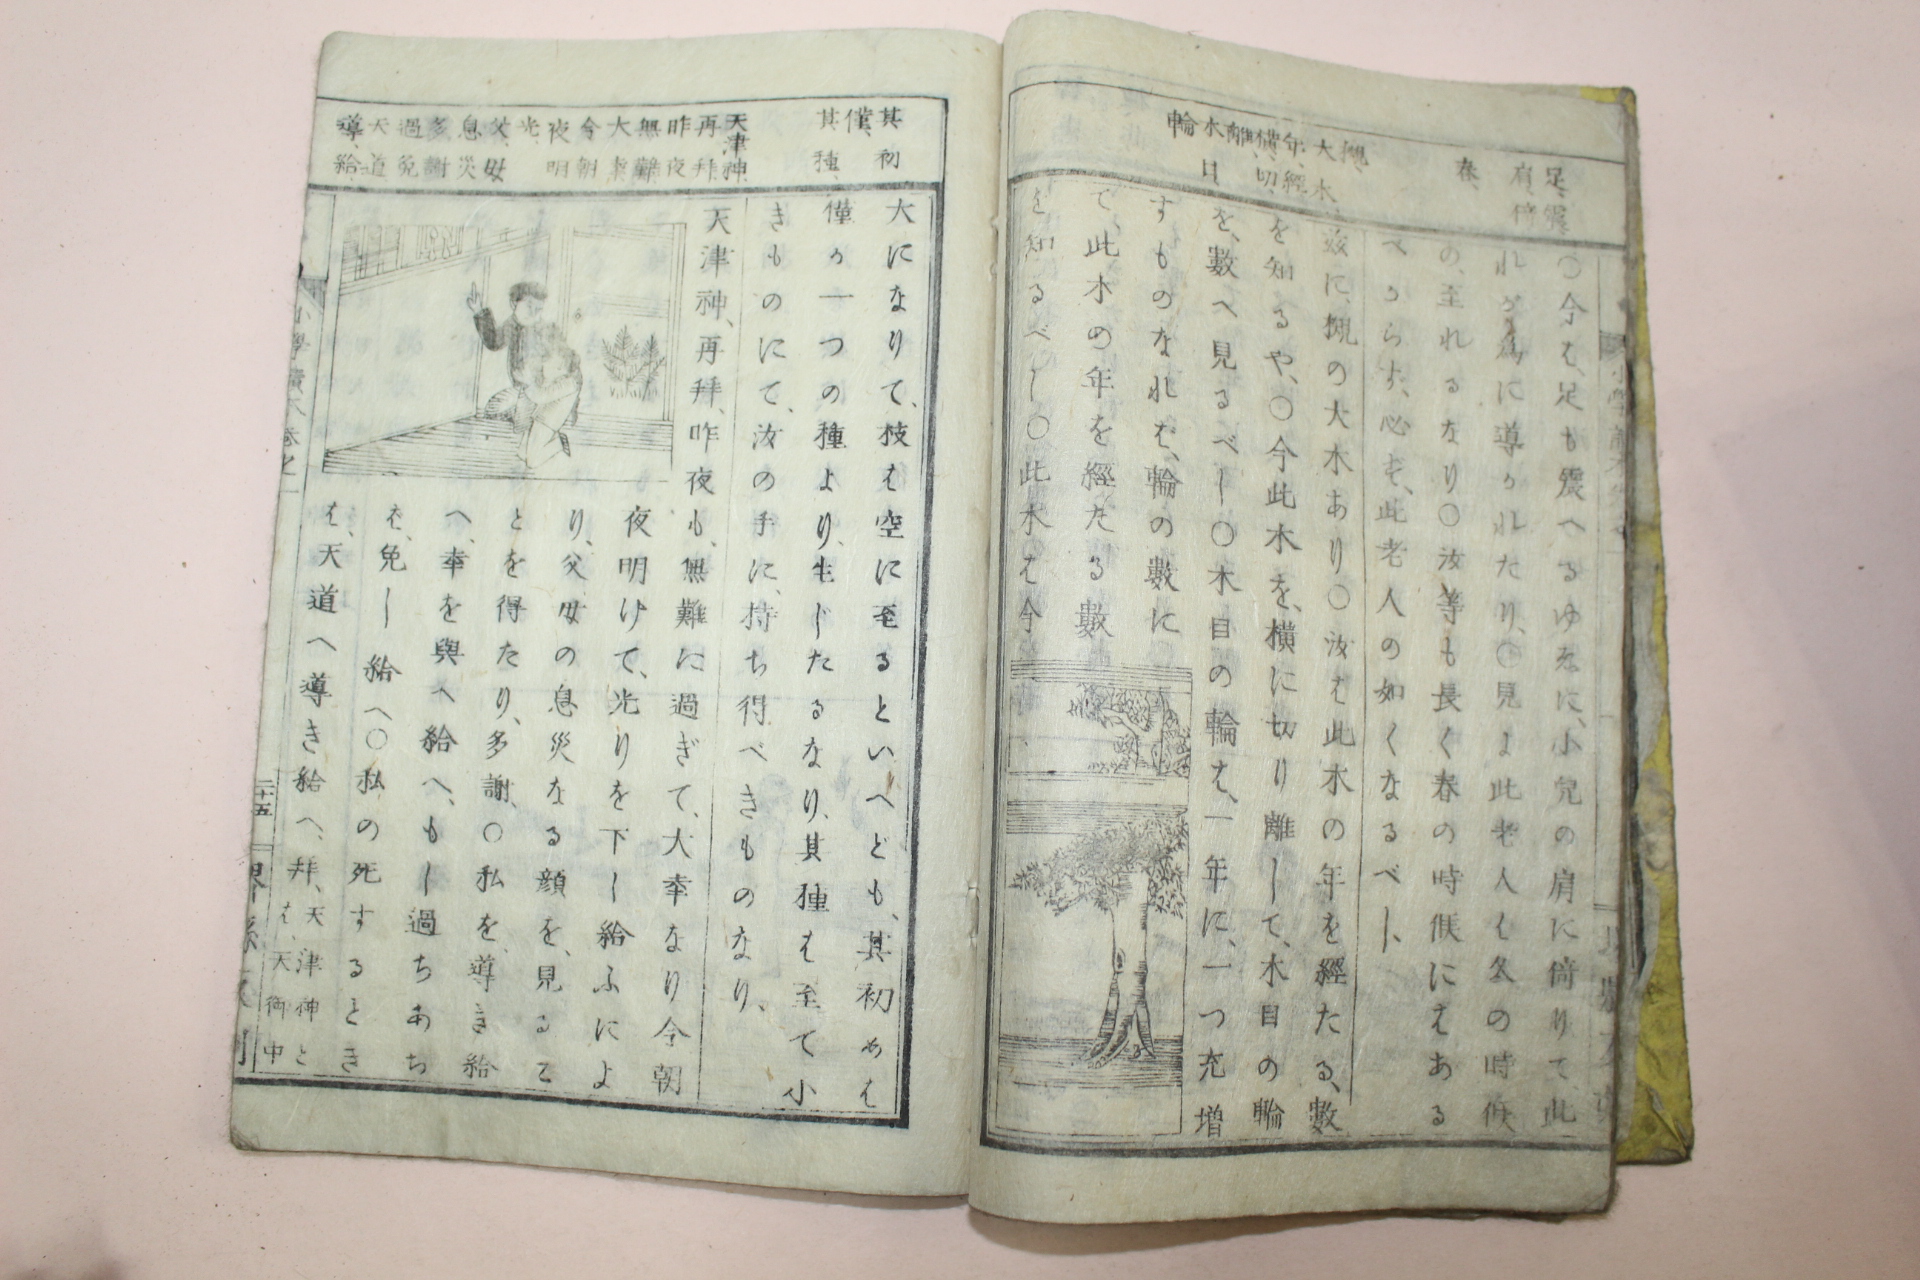 足、震
肩、倚
春、
槻、
大木、
年、經
横、切
離
木目
輪
〇今は、足も震へるゆゑに、小兒の肩に倚りて、此
れが爲に導かれたり、〇見よ此老人も冬の時候
の、至れるなり〇汝等も長く春の時候にはある
べからす、必も、此老人の如くなるべし、
茲に、槻の大木あり〇汝は此木の年を經たる、數
を知るや、〇今此木を、横に切り離して、木目の輪
を、數へ見るべし〇木目の輪は、一年に、一つ充増
すものなれば、輪の數に
て、此木の年を經たる數
を知るべし〇此木は今
其初
僅、
其種、
天津神、
再拜
昨夜
無難
大幸
今朝
夜明
光、
父、母
息災
多謝
過免
天道
導、給
大になりて、枝は空に至るといへども、其初めは
僅か一つの種より、生じたるなり、其種は至て小
きものにて、汝の手に、持ち得べきものなり、
天津神、再拜、昨夜も、無難に過ぎて、大幸なり今朝
夜明けて、光りを下し給ふによ
り、父母の息災なる顔を、見るこ
とを得たり、多謝、〇私を、導き給
へ、幸を與へ給へ、もし過ちあち
ば、免し給へ〇私の死するとき
は、天道へ導き給へ、拜、天津神と
は、天御中
小學讀本卷之一
二十五